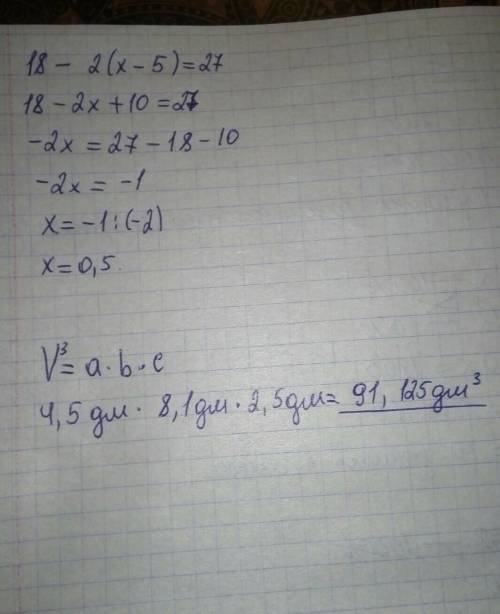 18 - 2(x-5)=27
18-2x+10=27
-2x = 27-18-10
-2x = -1
x=-1:(-2)
x=0,5.
V³= a·b·c
4,5 дм· 8,1дм·2,5дм= 91,125дм³